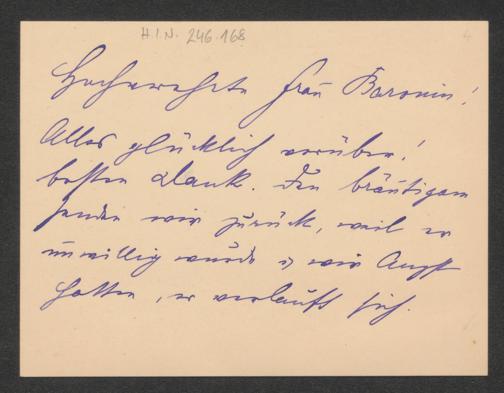 H.I.N. 246.168
4
Hochverehrte Frau Baronin!
Alles glücklich vorüber!
besten Dank. Den Bräutigam
senden wir zurück, weil er
unwillig wurde u wir Angst
hatten, er verlauft sich.